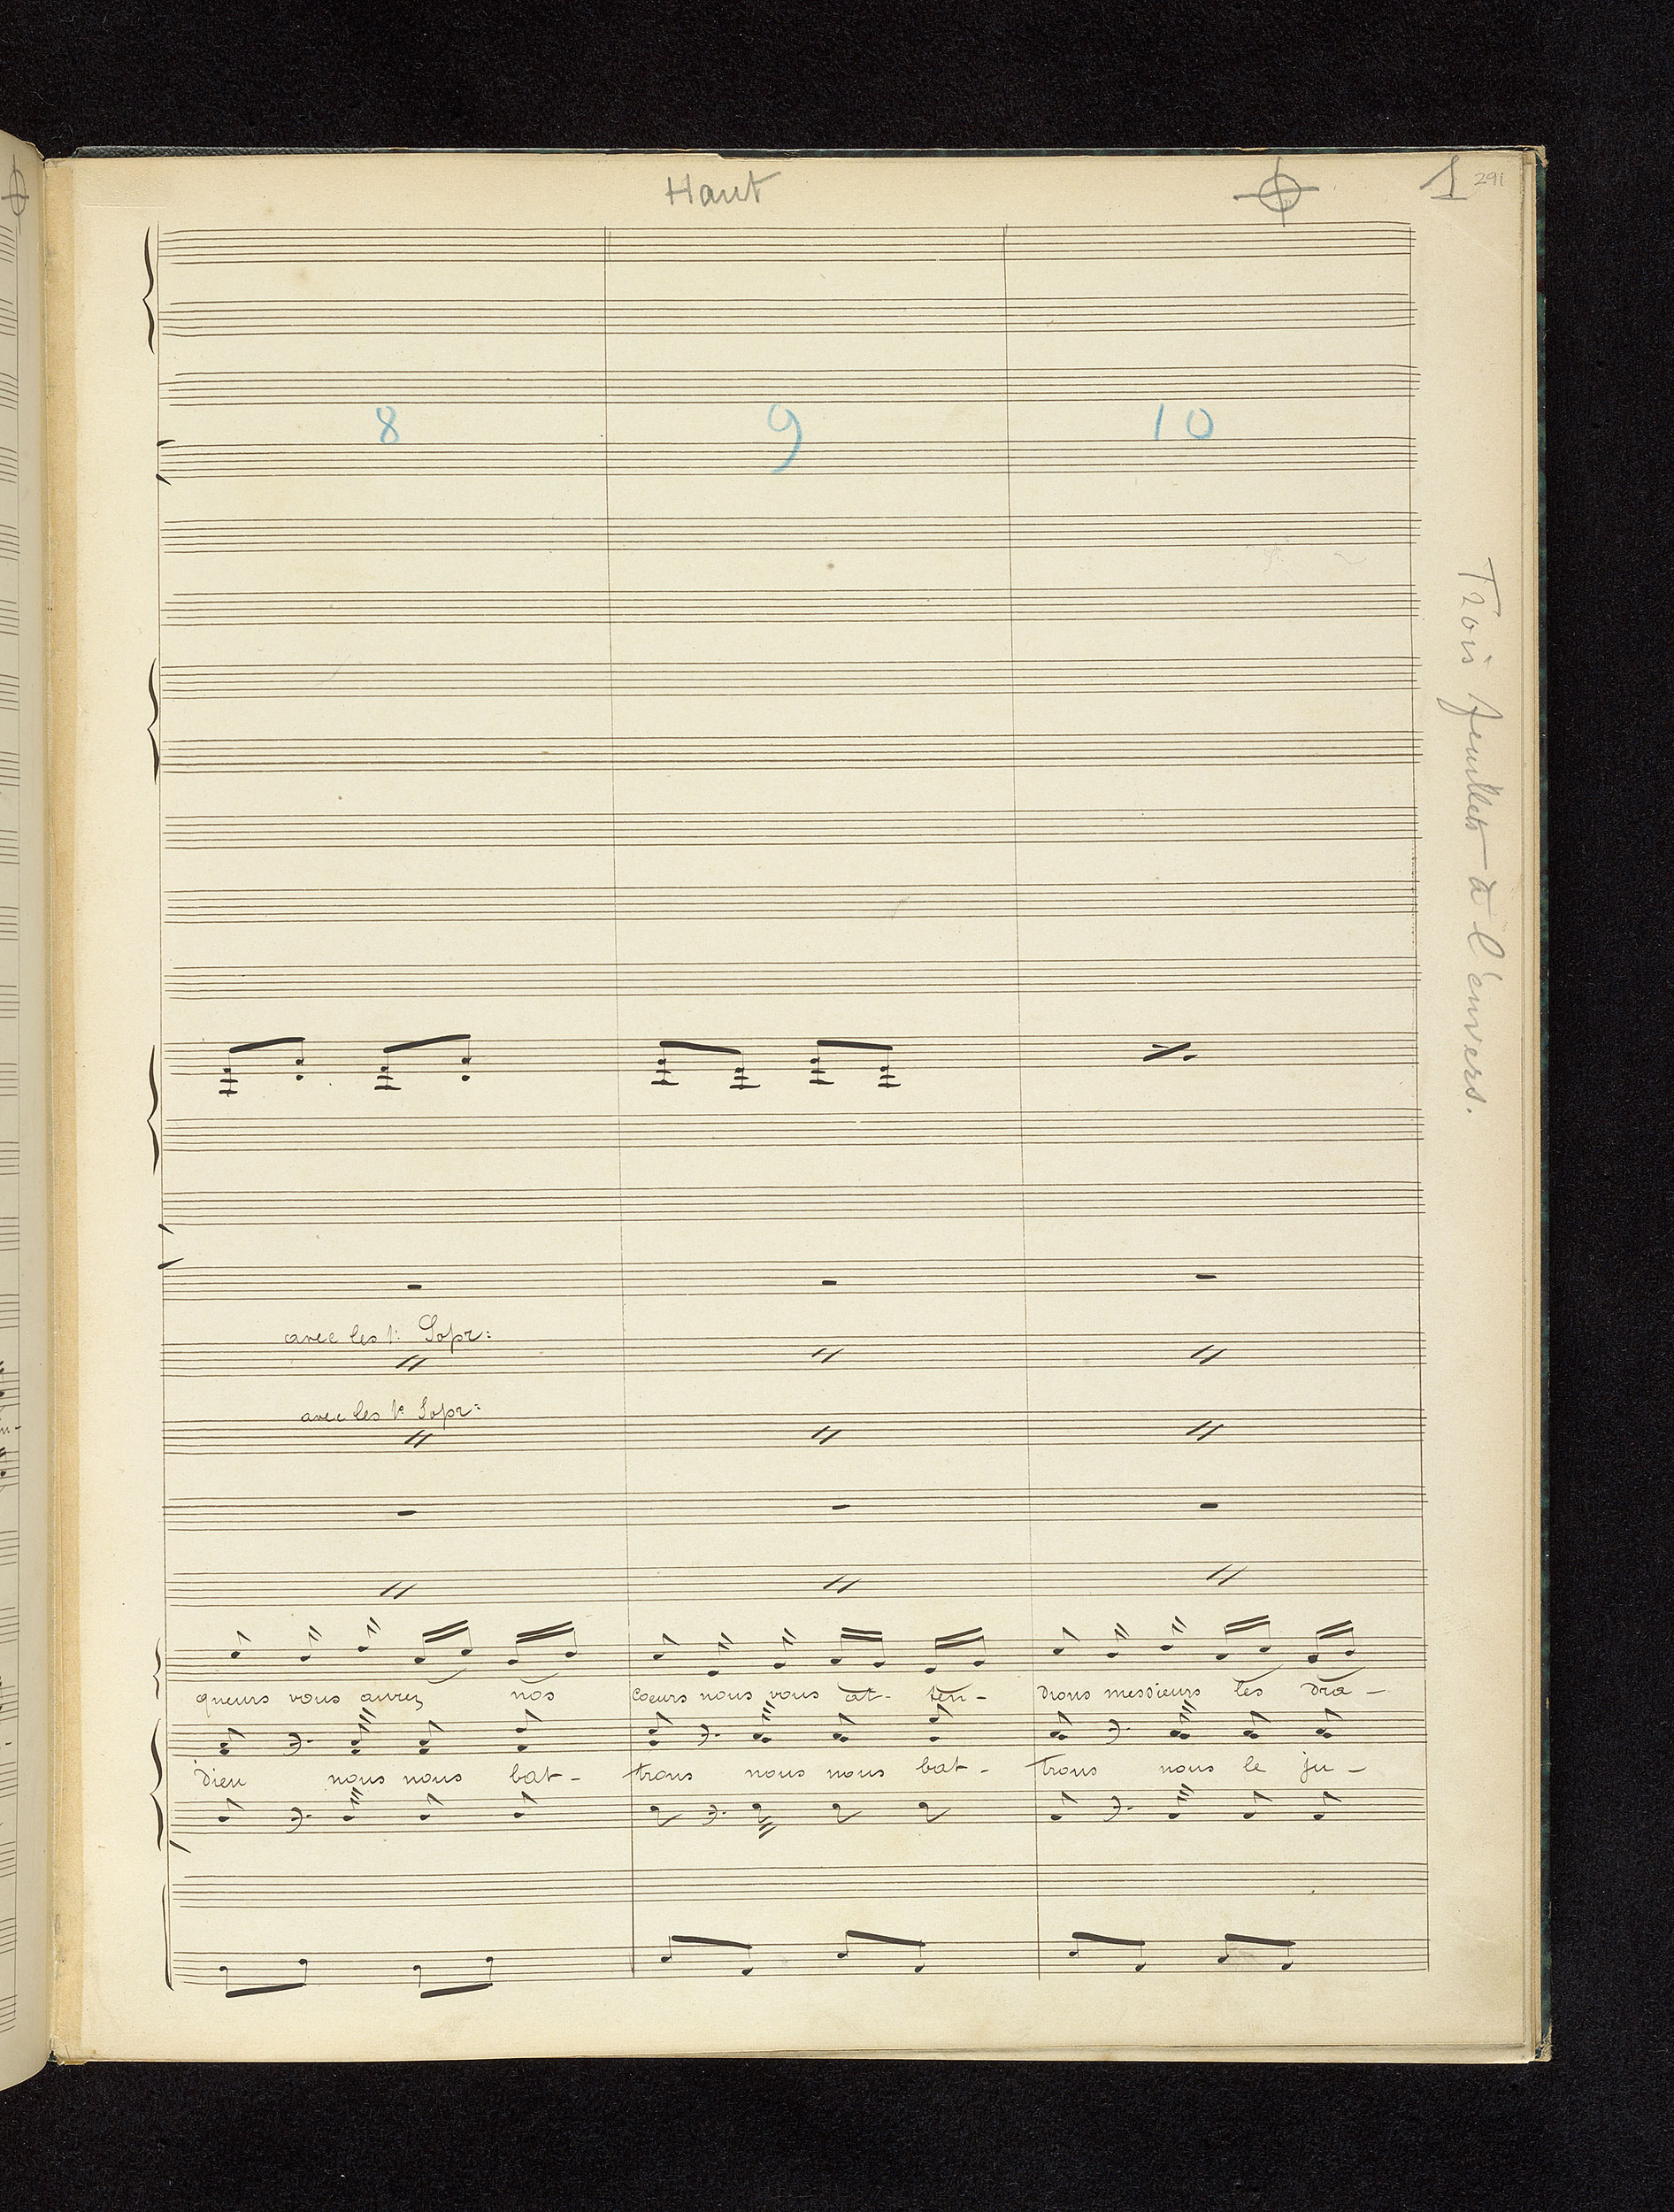 Haut 1 291
8 9 10
Trois feuillets à l'envers.
avec les 1: Sopr:
avec les 1e Sopr:
queurs vous aurez nos coeurs nous vous at- ten- drons messieurs les dra-
dieu nous nous bat- trons nous nous bat- trons nous le ju-